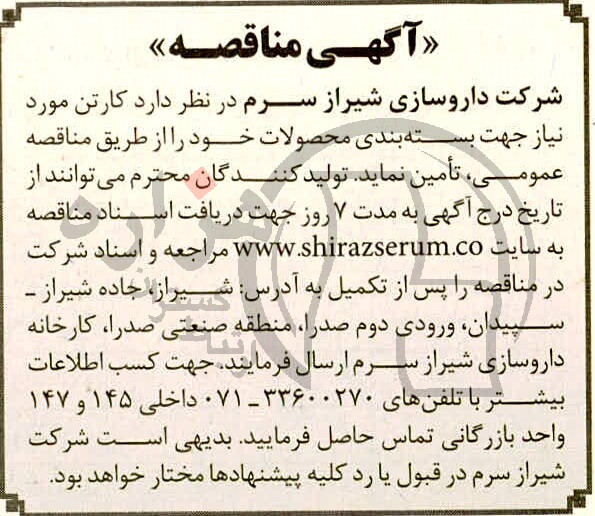 «آگهی مناقصه»
شرکت داروسازی شیراز سرم در نظر دارد کارتن مورد
نیاز جهت بسته‌بندی محصولات خود را از طریق مناقصه
عمومی، تأمین نماید. تولیدکنندگان محترم می‌توانند از
تاریخ درج آگهی به مدت ۷ روز جهت دریافت اسناد مناقصه
به سایت www.shirazserum.co مراجعه و اسناد شرکت
در مناقصه را پس از تکمیل به آدرس: شیراز، جاده شیراز ـ
سپیدان، ورودی دوم صدرا، منطقه صنعتی صدرا، کارخانه
داروسازی شیراز سرم ارسال فرمایند. جهت کسب اطلاعات
بیشتر با تلفن‌های ۳۳۶۰۰۲۷۰ ـ ۰۷۱ داخلی ۱۴۵ و ۱۴۷
واحد بازرگانی تماس حاصل فرمایید. بدیهی است شرکت
شیراز سرم در قبول یا رد کلیه پیشنهادها مختار خواهد بود.